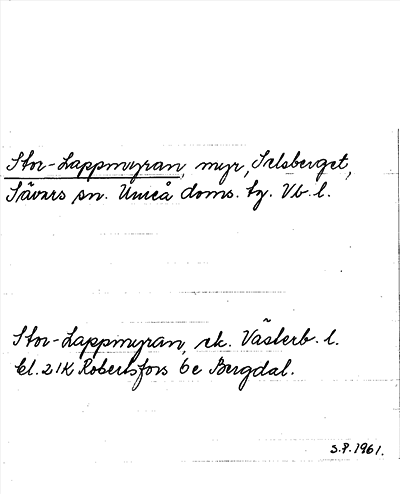 Stor-Lappmyran, myr, Selsberget,
Sävars sn. Umeå doms. tg. Vb. l.
Stor-Lappmyran, ek. Västerb. l.
bl. 21K Robertsfors 6e Bergdal.
S.P. 1961.